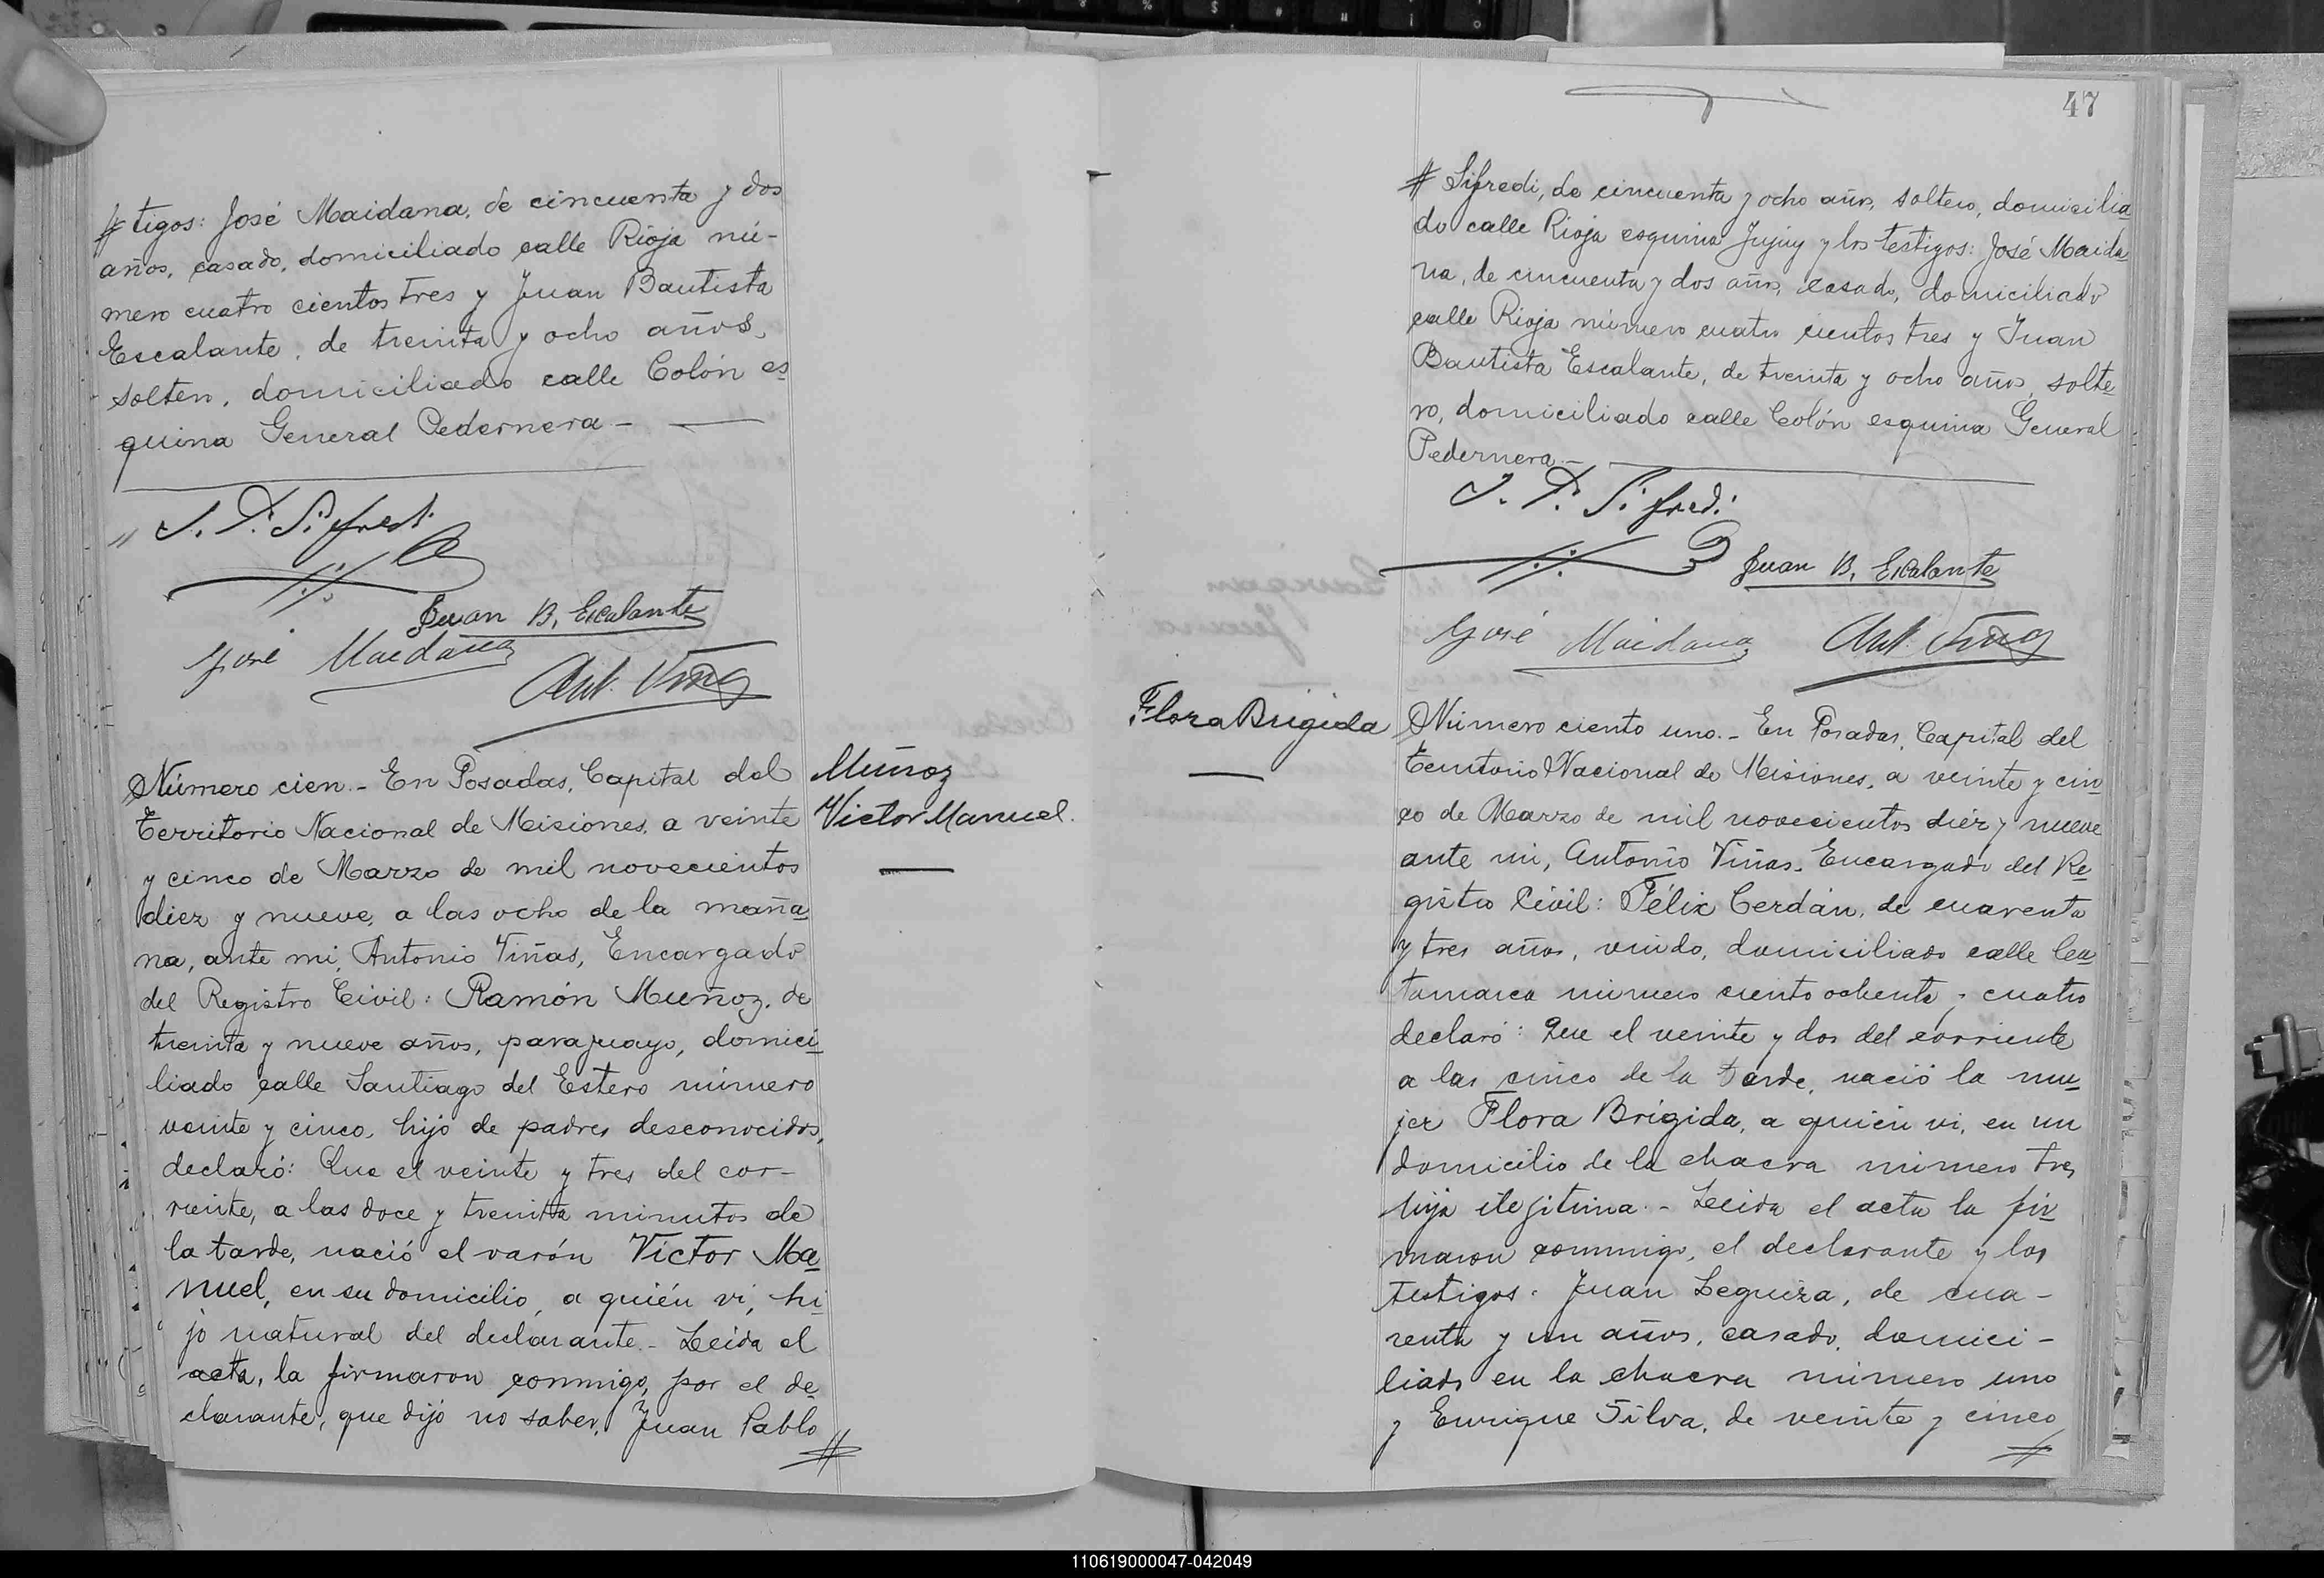 # tigos: José Maidana, de cincuenta y dos
años, casado, domiciliado calle Rioja nú-
mero cuatro cientos tres y Juan Bautista
Escalante, de treinta y ocho años,
soltero, domiciliado calle Colón es
quina General Pedernera -
J. P. Sifredi
Juan B. Escalante
José Maidana
Ant. Viñas
Número cien.- En Posadas, Capital del
Territorio Nacional de Misiones, a veinte
y cinco de Marzo de mil novecientos
diez y nueve, a las ocho de la maña
na, ante mi, Antonio Viñas, Encargado
del Registro Civil: Ramón Muñoz, de
treinta y nueve años, paraguayo, domici
liado calle Santiago del Estero número
veinte y cinco, hijo de padres desconocidos,
declaró: Que el veinte y tres del cor-
riente, a las doce y treinta minutos de
la tarde, nació el varón Víctor Ma
nuel, en su domicilio, a quién vi, hi
jo natural del declarante.- Leida el
acta, la firmaron conmigo, por el de
clarante, que dijo no saber, Juan Pablo
#
Muñoz
Victor Manuel.
47
# Sifredi, de cincuenta y ocho años, soltero, domicilia
do calle Rioja esquina Jujuy y los testigos: José Maida
na, de cincuenta y dos años, casado, domiciliado
calle Rioja número cuatro cientos tres y Juan
Bautista Escalante, de treinta y ocho años, solte
ro, domiciliado calle Colón esquina General
Pedernera.-
J. P. Sifredi
Juan B. Escalante
José Maidana
Ant. Viñas
Flora Brigida
Número ciento uno.- En Posadas, Capital del
Territorio Nacional de Misiones, a veinte y cin
co de Marzo de mil novecientos diez y nueve
ante mi, Antonio Viñas, Encargado del Re
gistro Civil: Félix Cerdán, de cuarenta
y tres años, viudo, domiciliado calle Ca
tamarca número ciento ochenta y cuatro
declaró: Que el veinte y dos del corriente
a las cinco de la tarde, nació la mu
jer Flora Brígida, a quién vi, en un
domicilio de la chacra número tres
hija ilegitima.- Leida el acta la fir
maron conmigo, el declarante y los
testigos: Juan Leguiza, de cua-
renta y un años, casado, domici-
liado en la chacra número uno
y Enrique Silva, de veinte y cinco
#
110619000047-042049